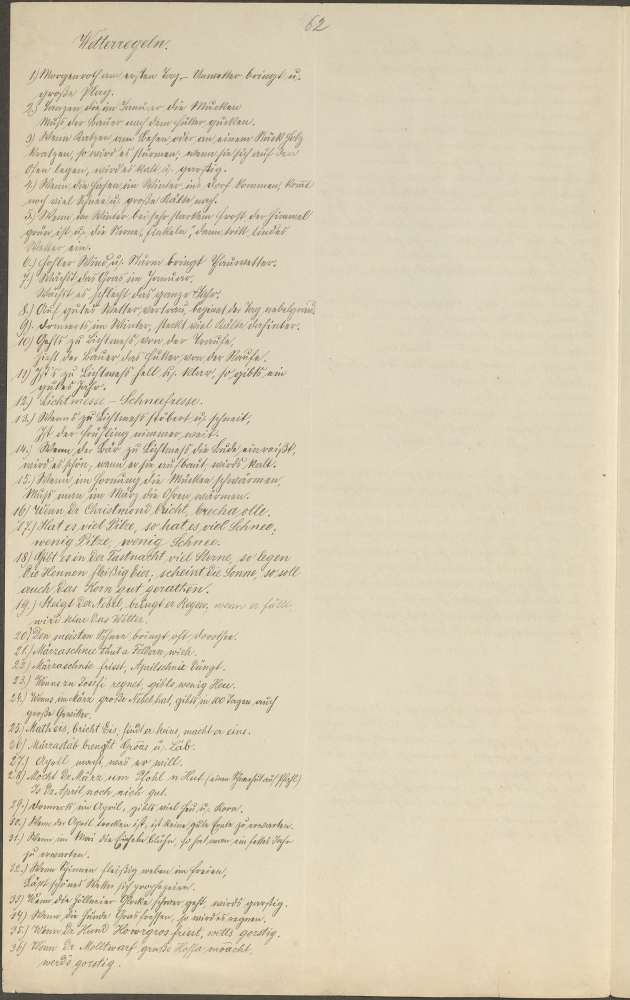 62
Wetterregeln.
1) Morgenroth am ersten Tag, - Unwetter bringt u.
große Plag.
2) Tanzen die im Januar die Mucken
Muß der Bauer nach dem Futter gucken.
3) Wenn Katzen am Besen oder an einem Stück Holz
kratzen, so wird es stürmen, wenn sie sich auf den
Ofen legen, wird es kalt u. garstig.
4) Wenn die Hasen im Winter ins Dorf kommen, komt
noch viel Schnee u. große Kälte nach.
5) Wenn im Winter bei sehr starkem Frost der Himmel
grün ist u. die Sterne „funkeln", dann tritt lindes
Wetter ein.
6.) Wind u. Sturm bringt Thauwetter.
7.) Wächst das Gras im Januar,
Wächst es schlecht das ganze Jahr.
8.) Auf gutes Wetter vertrau, beginnt der Tag nebelgrau.
9). Donnerts im Winter, steckt viel Kälte dahinter.
10) Gehts zu Lichtmeß von der Traufe,
Zieht der Bauer das Futter von der Raufe.
11) Ist's zu Lichtmeß hell u. klar, so gibts ein
gutes Jahr.
12.) Lichtmesse - Schneefresse.
13.) Wenns zu Lichtmeß stöbert u. schneit,
Ist der Frühling nimmer weit.
14.) Wenn der Bär zu Lichtmeß die Bude einreißt,
wird es schön, wenn er sie aufbaut, wirds kalt.
15.) Wenn im Hornung die Mücken schwärmen,
Muß man im März die Ofen wärmen.
16) Wenn de Christmond bricht, brecha olle.
17.) Hat es viel Pitze, so hat es viel Schnee,
wenig Pitze, wenig Schnee.
18) Gibt es in der Fastnacht viel Sterne, so legen
die Hennen fleißig Eier, scheint die Sonne, so soll
auch das Korn gut gerathen.
19.) Steigt der Nebel, bringt er Regen, wenn er fällt,
wird klar das Wetter.
20) Den meisten Schnee bringt oft Dorothee.
21.) Märzaschnee thut a Feldern wieh.
22.) Märzaschnie frisst, Aprilschnie düngt.
23.) Wenns zu Josefi regnet, gibts wenig Heu.
24.) Wenns im März große Nebel hat, gibts in 100 Tagen auch
große Gewitter.
25) Mathees, bricht Eis, findt er keins, macht er eins.
26) Märzastab brengt Groas u. Läb.
27.) April macht, was er will.
28.) Mocht de März um Pfohl n Hut (einen Schneehut auf Pfahl)
Is de April noch nich gut.
29.) Donnerts im April, gibts viel Heu u. Korn.
30.) Wenn der April trocken ist, ist keine gute Ernte zu erwarten.
31.) Wenn im Mai die Eicheln blühn, so hat man ein fettes Jahr
zu erwarten.
32.) Wenn Spinnen fleißig weben im Freien,
Läßt schönes Wetter sich prophezeien.
33) Wenn die Glocke schwer geht, wirds garstig.
34) Wenn die Hunde Gras fressen, so wird es regnen.
35.) Wenn de Hund frisst, wells gorstig.
36) Wenn de Molltwarf gruße Hoffa moacht,
werds gorstig.